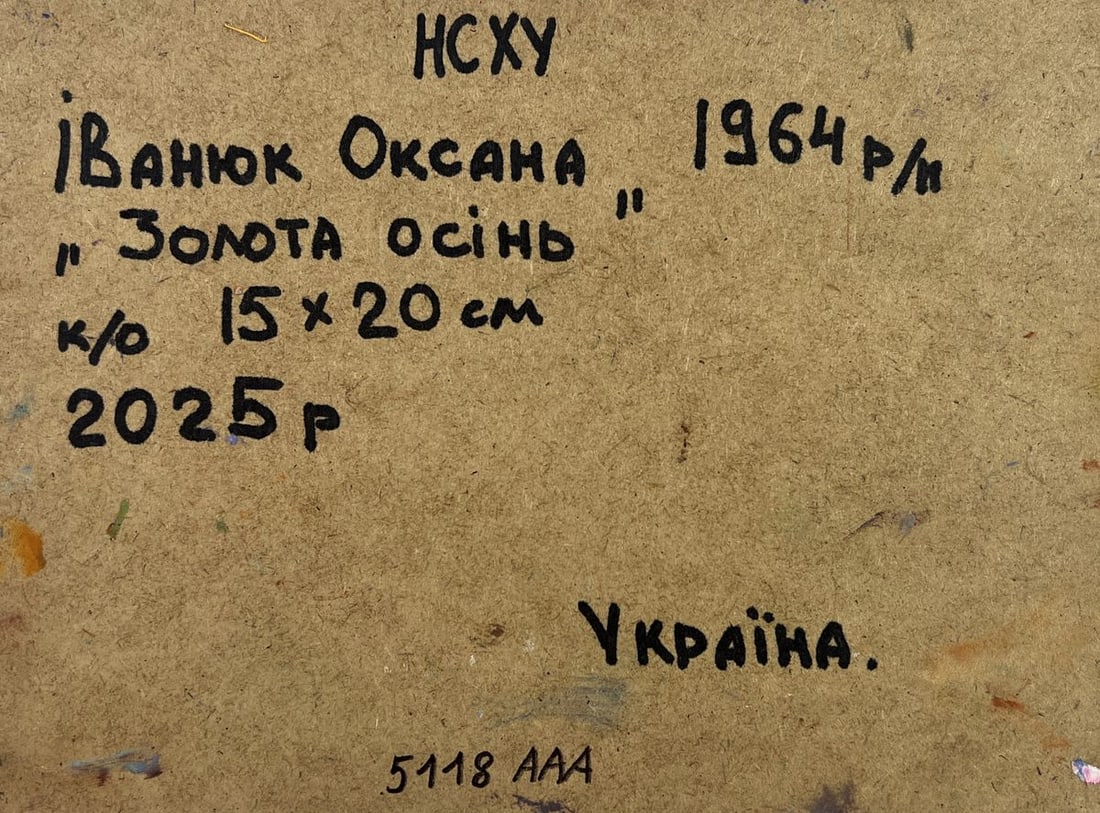 НСХУ
Іванюк Оксана 1964 р/н
„Золота осінь"
к/о 15 x 20 см
2025 р
Україна.
5118 AAA